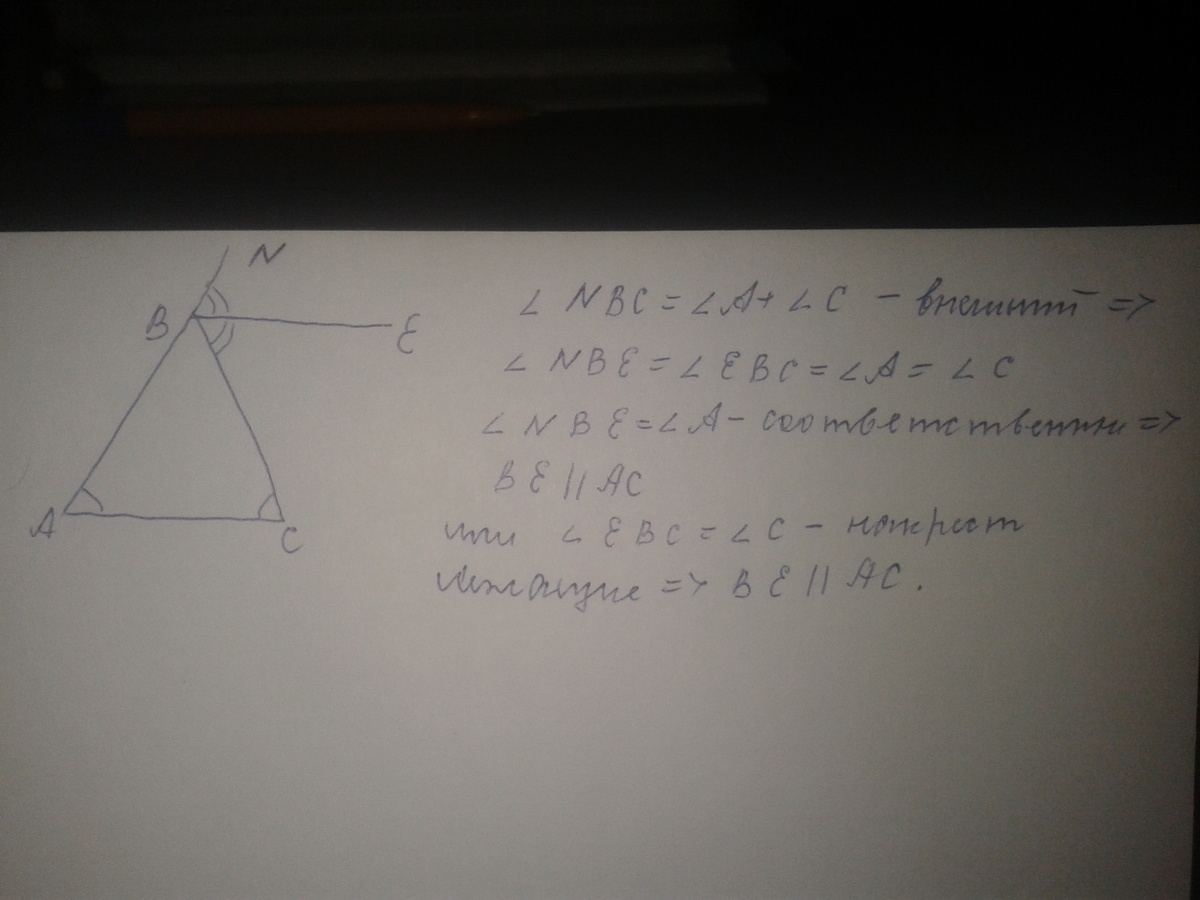 N
B
E
A
C
∠ NBC = ∠A + ∠C - внешний =>
∠ NBE = ∠EBC = ∠A = ∠C
∠ NBE = ∠A - соответственны =>
BE || AC
или ∠ EBC = ∠C - накрест
лежащие => BE || AC.